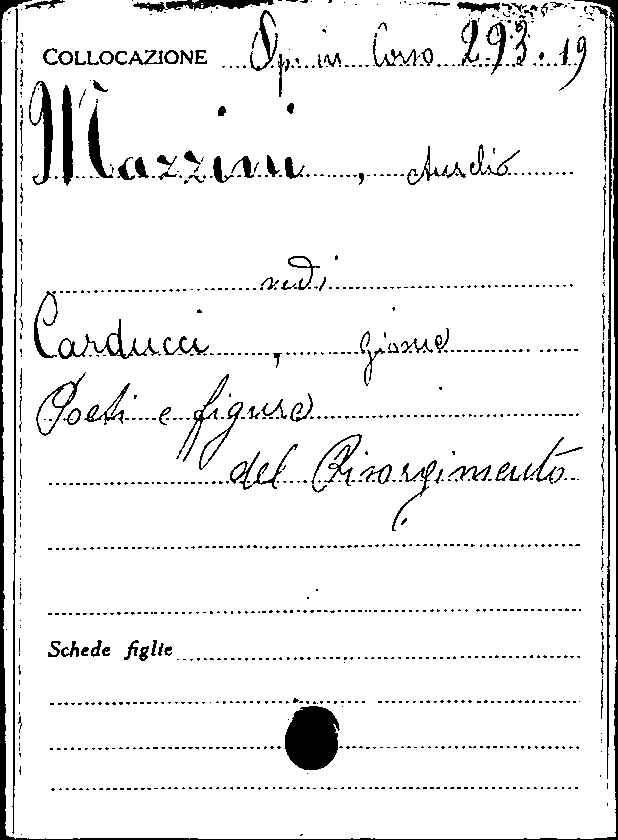 COLLOCAZIONE Op. in Corso 293.19
Mazzini, Aurelio
vedi
Carducci, Giosue
Poeti e figure
del Risorgimento
Schede figlie